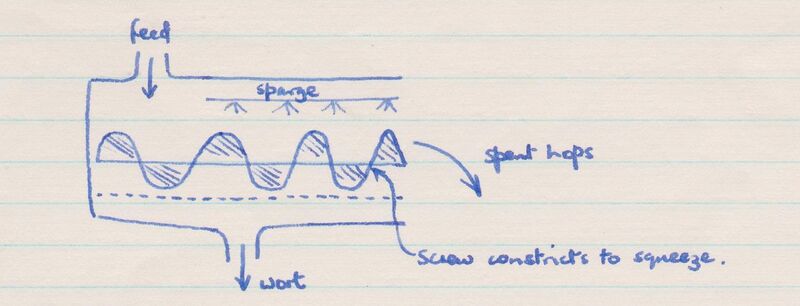 feed
sparge
spent hops
Screw constricts to squeeze.
wort